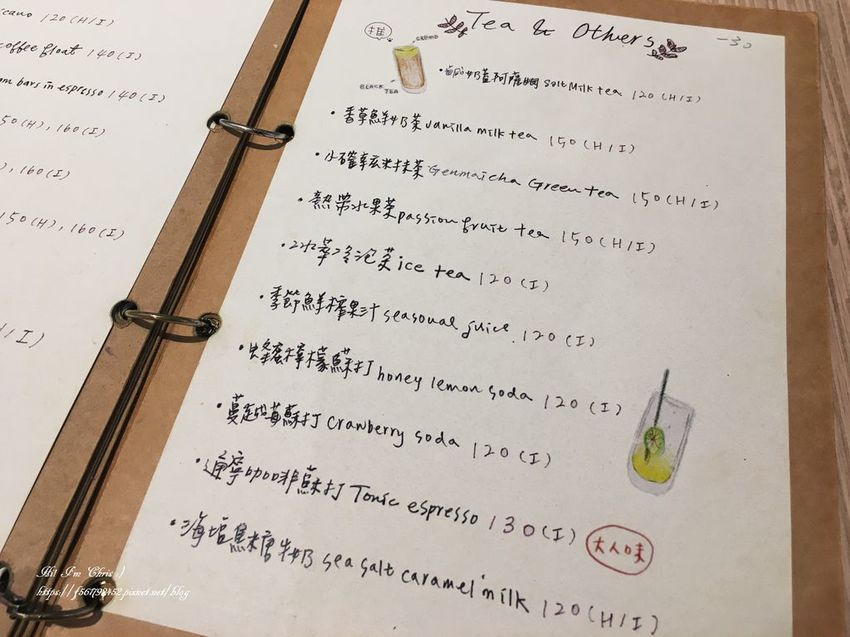 cano 120 (H/I)
coffee float 140 (I)
m bars in espresso 140 (I)
50 (H), 160 (I)
), 160 (I)
150 (H), 160 (I)
H/I)
Tea & Others
-30
推
BLACK TEA
salt milk tea 120 (H/I)
・香草鮮奶茶 Vanilla milk tea 150 (H/I)
・小確幸玄米抹茶 Genmaicha Green tea 150 (H/I)
・熱帶水果茶 passion fruit tea 150 (H/I)
・冰萃冷泡茶 ice tea 120 (I)
・季節鮮榨果汁 seasonal juice 120 (I)
・蜂蜜檸檬蘇打 honey lemon soda 120 (I)
・蔓越莓蘇打 Cranberry soda 120 (I)
・通寧咖啡蘇打 Tonic espresso 130 (I) 大人味
・海塩焦糖牛奶 sea salt caramel milk 120 (H/I)
Hi! I'm Chris :)